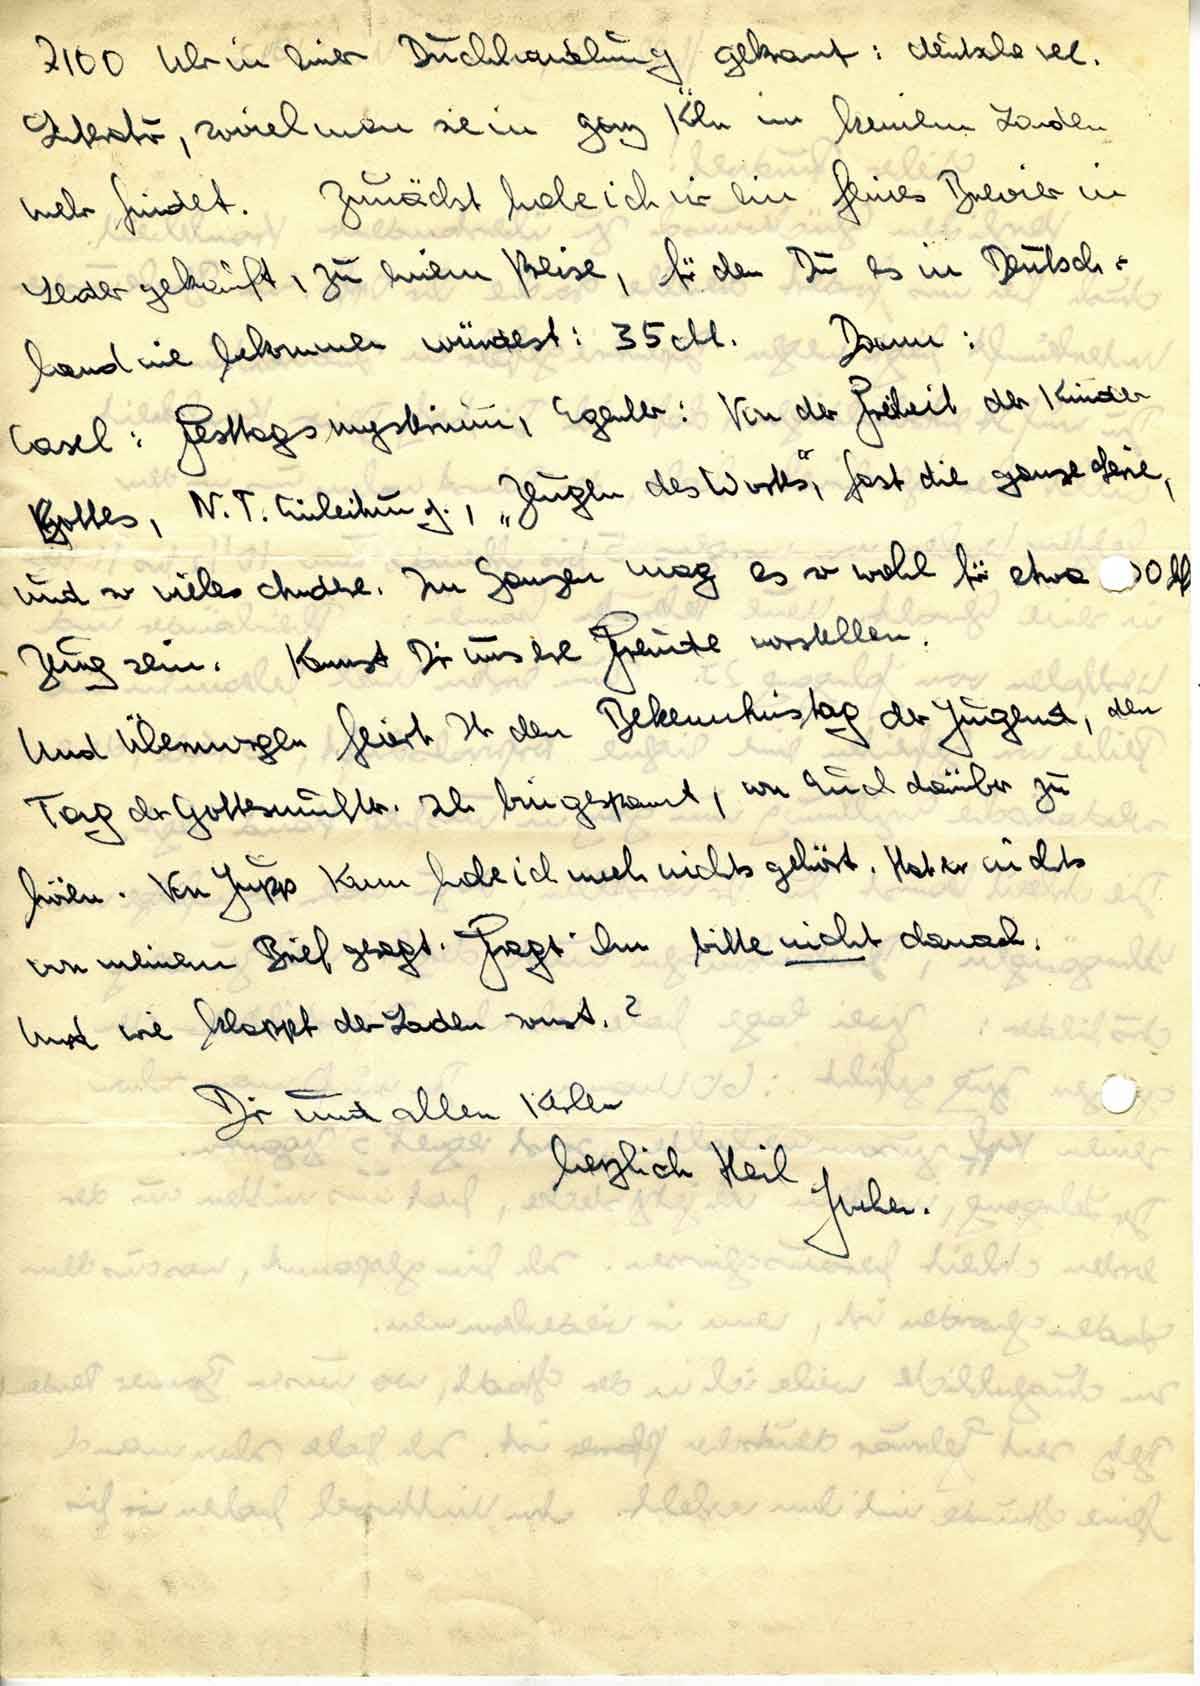 7100 Uhr in einer Buchhandlung gekramt: deutsche rel.
Literatur, soviel man sie in ganz Köln in keinem Laden
mehr findet. Zunächst habe ich mir ein feines Brevier in
Leder gekauft, zu einem Preise, für den Du es in Deutsch-
land nie bekommen würdest: 35 M. Dann:
Casel: Festtagsmysterium, Egenter: Von der Freiheit der Kinder
Gottes, N.T. Einleitung, „Zeugen des Worts", fast die ganze Serie,
und so vieles Andere. Im Ganzen mag es so wohl für etwa 00 M
Zeug sein. Kannst Dir unsere Freude vorstellen.
Und Übermorgen feiert Ihr den Bekenntnistag der Jugend, den
Tag der Gottesmutter. Ich bin gespannt, von Euch darüber zu
hören. Von Jupp Kann habe ich noch nichts gehört. Hat er nichts
von meinem Brief gesagt. Fragt ihn bitte nicht danach.
Und wie klappt der Laden sonst.?
Dir und allen Kerlen
herzlich Heil
Jochen.